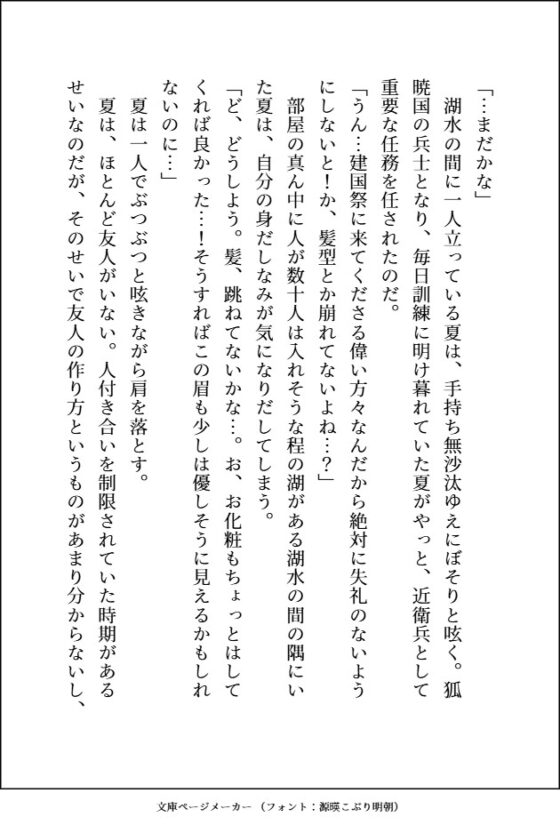 「…まだかな」
　湖水の間に一人立っている夏は、手持ち無沙汰ゆえにぼそりと呟く。狐
暁国の兵士となり、毎日訓練に明け暮れていた夏がやっと、近衛兵として
重要な任務を任されたのだ。
「うん…建国祭に来てくださる偉い方々なんだから絶対に失礼のないよう
にしないと！か、髪型とか崩れてないよね…？」
　部屋の真ん中に人が数十人は入れそうな程の湖がある湖水の間の隅にい
た夏は、自分の身だしなみが気になりだしてしまう。
「ど、どうしよう。髪、跳ねてないかな…。お、お化粧もちょっとはして
くれば良かった…！そうすればこの眉も少しは優しそうに見えるかもしれ
ないのに…」
　夏は一人でぶつぶつと呟きながら肩を落とす。
　夏は、ほとんど友人がいない。人付き合いを制限されていた時期がある
せいなのだが、そのせいで友人の作り方というものがあまり分からないし、
文庫ページメーカー（フォント：源暎こぶり明朝）